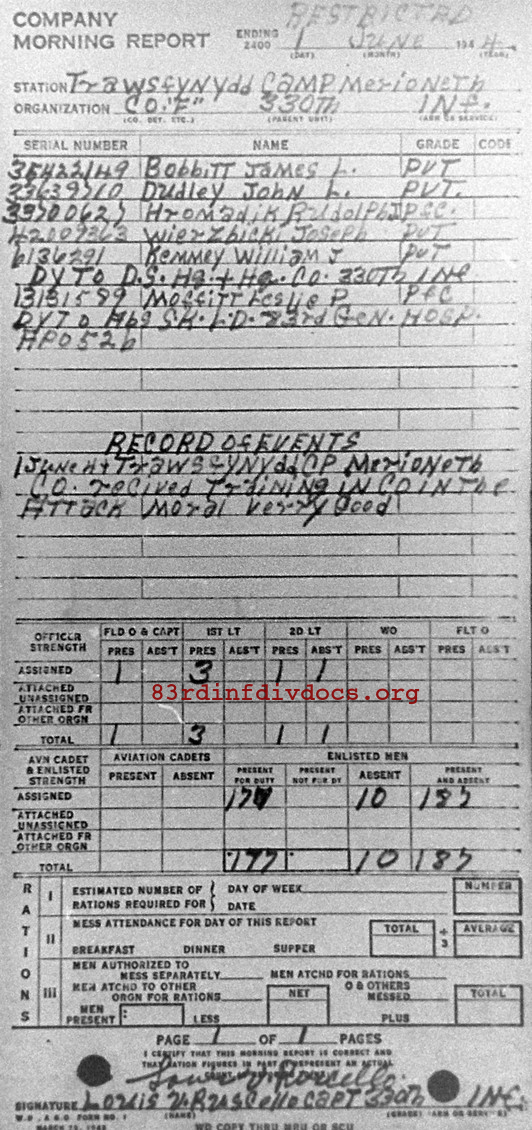 COMPANY
MORNING REPORT
RESTRICTED
ENDING 2400 1 June 1944
(DAY) (MONTH) (YEAR)
STATION Trawsfynydd Camp Merioneth
ORGANIZATION CO. "F" 330Th INF.
(CO. DET. ETC.) (PARENT UNIT) (ARM OR SERVICE)
SERIAL NUMBER NAME GRADE CODE
35422149 Bobbitt James L. PVT
33639710 Dudley John L. PVT.
Hromadik Rudolph J PFC.
42009363 Wierzbicki Joseph PVT
6136291 Kemmey William J PVT
DY TO D.S. Hq. + Hq. Co. 330Th INF
13151589 Moffitt Leslie P. PFC
DY TO Abs SK. L.D. 83rd GeN. HOSP.
APO 526
RECORD OF EVENTS
1 June 44 Trawsfynydd CP Merioneth
CO. recived Training IN CO IN The
Attack Moral verry Good
OFFICER STRENGTH FLD O & CAPT 1ST LT 2D LT WO FLT O
PRES ABS'T PRES ABS'T PRES ABS'T PRES ABS'T PRES ABS'T
ASSIGNED 1 3 1 1
ATTACHED UNASSIGNED
83rdinfdivdocs.org
ATTACHED FR OTHER ORGN
TOTAL 1 3 1 1
AVN CADET & ENLISTED STRENGTH AVIATION CADETS ENLISTED MEN
PRESENT ABSENT PRESENT FOR DUTY PRESENT NOT FOR DY ABSENT PRESENT AND ABSENT
ASSIGNED 177 10 187
ATTACHED UNASSIGNED
ATTACHED FR OTHER ORGN
TOTAL 177 10 187
RATIONS
I ESTIMATED NUMBER OF RATIONS REQUIRED FOR { DAY OF WEEK DATE NUMBER
II MESS ATTENDANCE FOR DAY OF THIS REPORT TOTAL ÷ 3 AVERAGE
BREAKFAST DINNER SUPPER
III MEN AUTHORIZED TO MESS SEPARATELY MEN ATCHD FOR RATIONS
MEN ATCHD TO OTHER ORGN FOR RATIONS NET O & OTHERS MESSED TOTAL
MEN PRESENT : LESS PLUS
PAGE 1 OF 1 PAGES
I CERTIFY THAT THIS MORNING REPORT IS CORRECT AND
THAT RATION FIGURES IN PART III REPRESENT AN ACTUAL
SIGNATURE Louis V. Ruscello CAPT 330th INF.
(NAME) (GRADE) (ARM OR SERVICE)
W.D., A.G.O. FORM NO. 1
WD COPY THRU MRU OR SCU